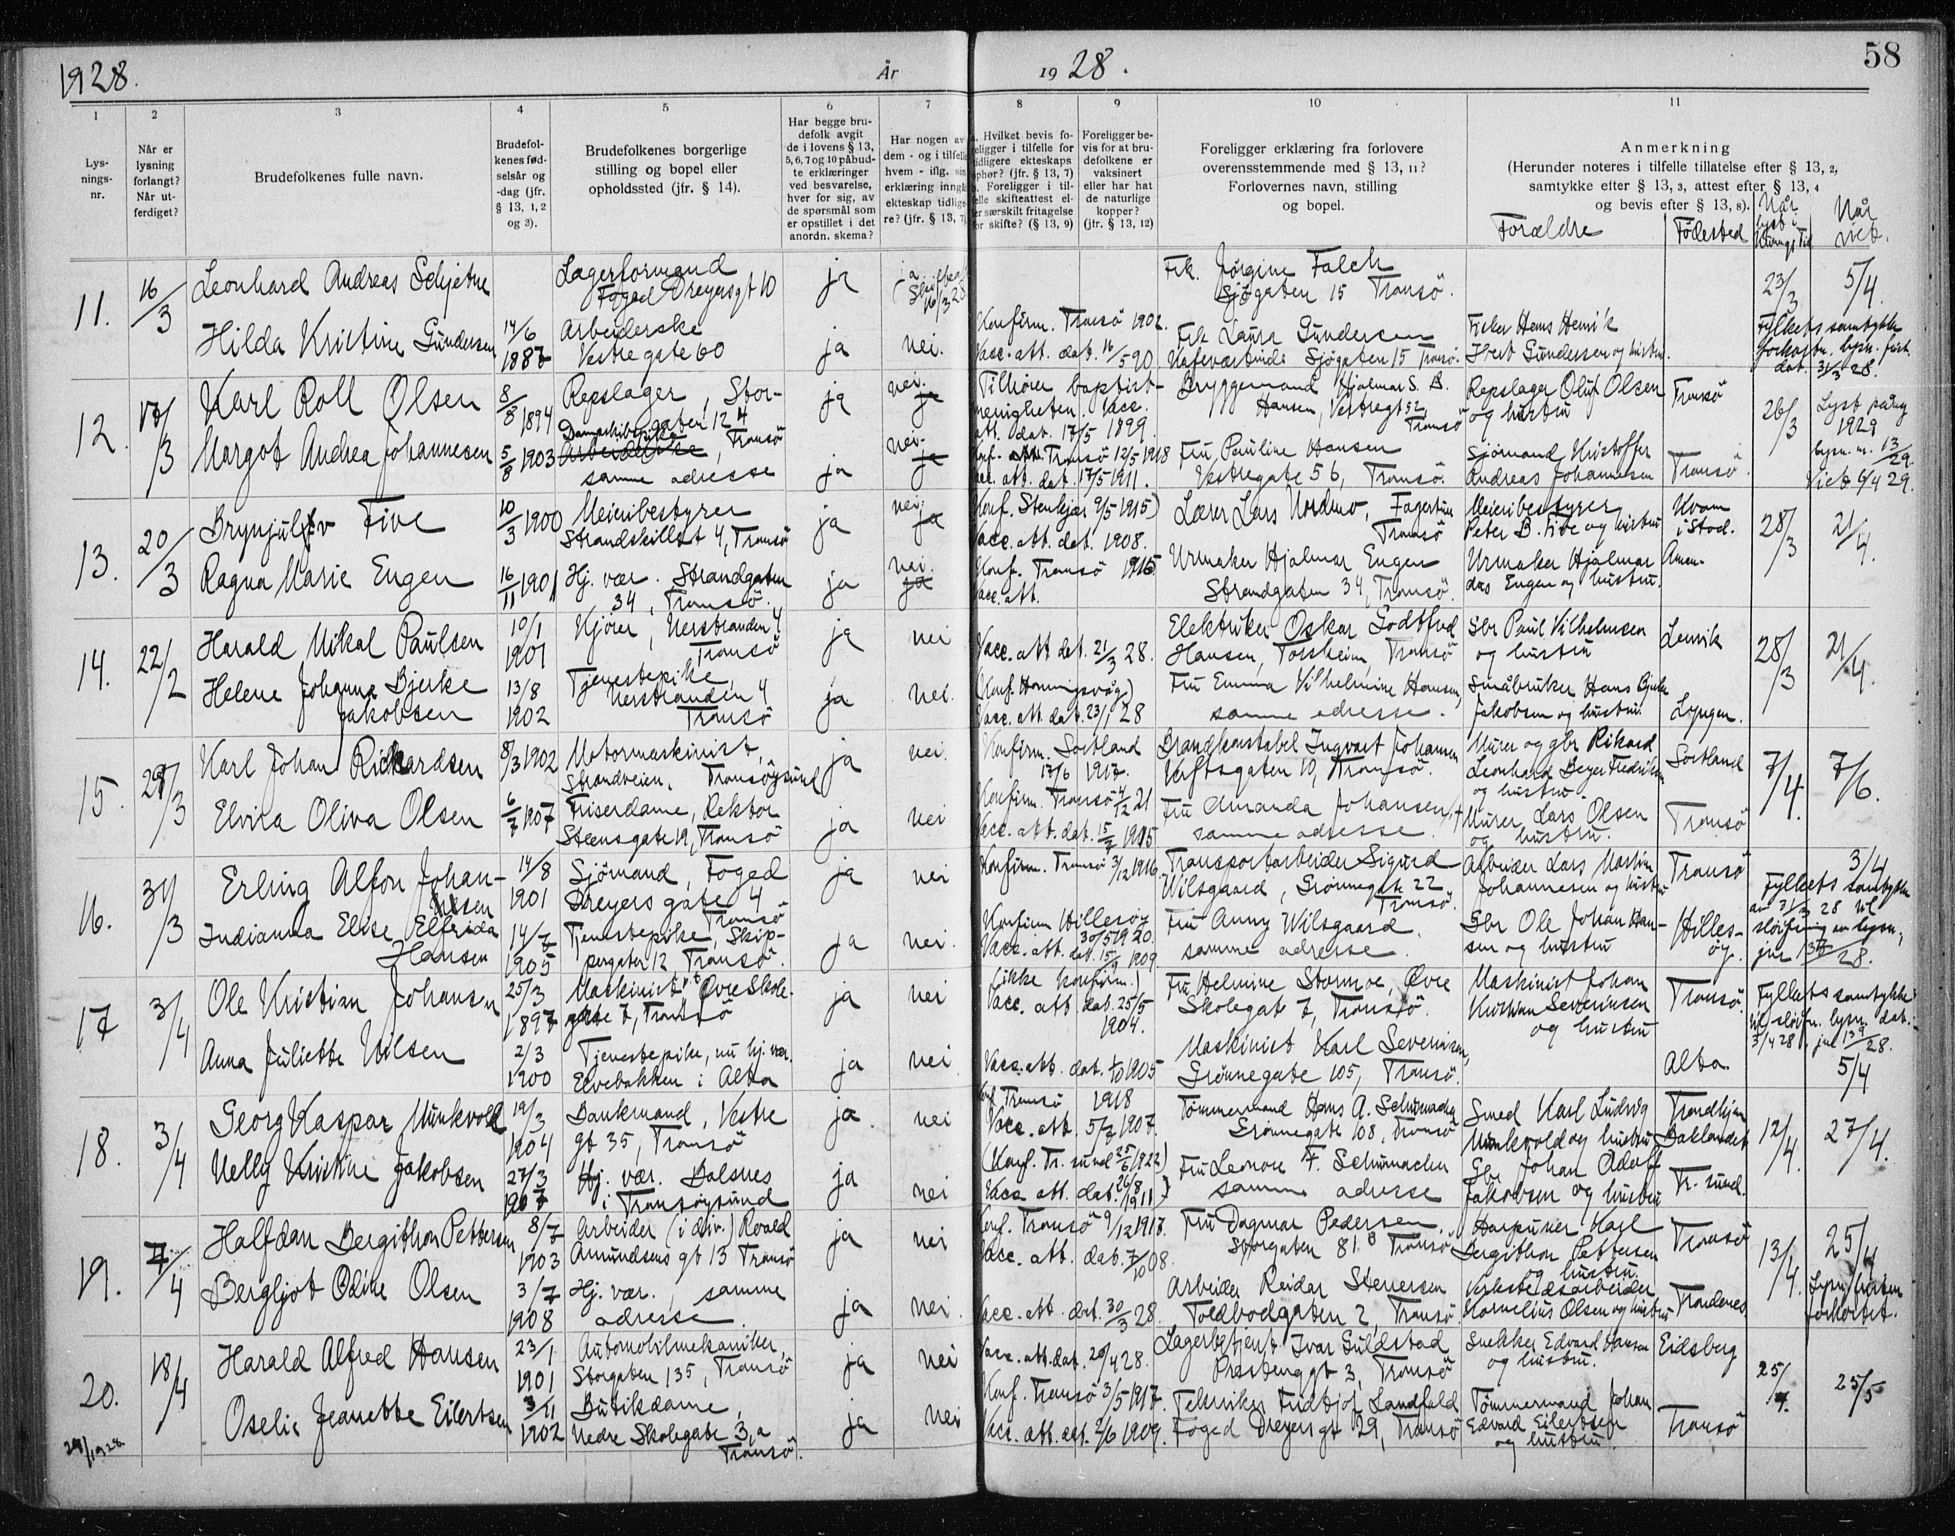 1928.
År
19 28.
58
1
2
3
4
5
6
7
8
9
10
11
Lys-
nings-
nr.
Når er
lysning
forlangt?
Når ut-
ferdiget?
Brudefolkenes fulle navn.
Brudefol-
kenes fød-
selsår og
-dag (jfr.
§ 13, 1, 2
og 3).
Brudefolkenes borgerlige
stilling og bopel eller
opholdssted (jfr. § 14).
Har begge bru-
defolk avgit
de i lovens § 13,
5, 6, 7 og 10 påbud-
te erklæringer
ved besvarelse,
hver for sig, av
de spørsmål som
er opstillet i det
anordn. skema?
Har nogen av
dem - og i tilfelle
hvem - iflg. sin
erklæring inngå
ekteskap tidlige-
re? (jfr. § 13, 7)
Hvilket bevis fo-
religger i tilfelle for
tidligere ekteskaps
ophør? (jfr. § 13, 7)
b. Foreligger i til-
felle skifteattest el-
er særskilt fritagelse
for skifte? (§ 13, 9)
Foreligger be-
vis for at bru-
defolkene er
vaksinert
eller har hat
de naturlige
kopper?
(jfr. § 13, 12)
Foreligger erklæring fra forlovere
overensstemmende med § 13, 11?
Forlovernes navn, stilling
og bopel.
Anmerkning
(Herunder noteres i tilfelle tillatelse efter § 13, 2,
samtykke efter § 13, 3, attest efter § 13, 4
og bevis efter § 13, 8).
Forældre
Födested
Når
lyst
Når
viet.
11.
16/3
Leonhard Andreas Schjetne
Lagerformand
Foged Dreyersgt 10
ja
Frk. Jörgine Falch
Sjögaten 15 Tromsö.
23/3
5/4.
Hilda Kristine Gundersen
14/6
1887
Arbeiderske
Vestregate 60
ja
nei.
Konfirm. Tromsö 1902.
Vacc. att. dat. 16/5 90
Frk Laura Gundersen
Sjögaten 15 Tromsö.
Fisker Hans Henrik
Gundersen og hustru.
Fylkets samtykke
dat. 31/3 28.
12.
17/3
Karl Roll Olsen
8/8 1894
Repslager, Stor-
gaten 124
Tromsö
ja
nei.
ja
Tilhører baptist-
menigheten. Vacc.
att. dat. 17/5 1899.
Bryggemand Hjalmar S. B.
Hansen, Vestregt 52,
Tromsö
Repslager Oluf Olsen
og hustru
Tromsö
26/3
Lyst påny
1929
lysn. nr. 13/29.
Viet 6/4 29.
Margot Andrea Johannesen
5/8 1903
Dampskibspike
Arbeiderske
samme adresse
ja
nei.
ja
Konf. Tromsö 12/5 1918
Vac. att. dat. 17/5 1911.
Fru Pauline Hansen
Vestregate 56, Tromsö.
Sjömand Kristoffer
Andreas Johannesen
Tromsö.
13.
20/3
Brynjulf Five
10/3 1900
Meieribestyrer
Strandskillet 4, Tromsö
ja
nei
ja
Konf. Stenkjær 9/5 1915)
Vacc. att. dat. 1908.
Lærer Lars Nordmo, Fagertun
Tromsö
Meieribestyrer
Peter B. Five og hustru
Kvam
i Stod.
28/3
21/4.
Ragna Marie Engen
16/11 1901
Hj. vær. Strandgaten
34, Tromsö.
ja
nei.
ja
Konf. Tromsö 1915
Vacc. att.
Urmaker Hjalmar Engen
Strandgaten 34, Tromsö.
Urmaker Hjalmar Aman-
das Engen og hustru.
14.
22/2
Harald Mikal Paulsen
10/1
1901
Kjörer, Verstranden 4
Tromsö
ja
nei
Vacc. att dat. 21/3 28.
Elektriker Oskar Godtfred
Hansen, Forsheim, Tromsö
Gbr Paul Vilhelmsen
og hustru
Lenvik
28/3
21/4.
Helene Johanne Bjerke
Jakobsen
13/8
1902
Tjenestepike,
Verstranden 4
Tromsö
ja
nei.
(Konf. Honningsvåg)
Vacc. att. dat. 23/1 28
Fru Emma Vilhelmine Hansen,
samme adresse.
Småbruker Hans Bjerke
Jakobsen og hustru.
Lyngen.
15.
Karl Johan Rickardsen
8/3 1902
Motormaskinist,
Strandveien. Tromsöysund
ja
nei.
Konfirm. Sortland
17/6 1917.
Brandkonstabel Ingvart Johansen
Verftsgaten 10, Tromsö.
Murer og gbr Rikard
Leonhard Beyer Fredriksen
og hustru.
Sortland
7/4.
7/6.
Elvira Oliva Olsen
6/7 1907
Friserdame, Rektor
Steensgate 19, Tromsö
ja
nei
Konfirm. Tromsö 4/12 21
Vacc. att. dat. 15/7 1915
Fru Amanda Johansen,
samme adresse.
Murer Lars Olsen
og hustru.
Tromsö
16.
31/3
Erling Alfon Johan-
sen
14/8
1901
Sjömand, Foged
Dreyers gate 4
Tromsö
ja
nei
Konfirm. Tromsö 3/12 1916.
Transportarbeider Sigurd
Wilsgaard, Grönnegate 22
Tromsö.
Arbeider Lars Martin
Johannesen og hustru
Tromsö
3/4
Fylkets samtykke
av 31/3 28 til
slöifning av lysn.,
Indianna Elise Elfrida
Hansen
14/7
1905
Tjenestepike, Skip-
pergaten 12 Tromsö.
ja
nei.
Konfirm Hillesöy
30/5 1920.
Vacc. att. dat. 15/9 1909.
Fru Anny Wilsgaard.
samme adresse.
Gbr Ole Johan Han-
sen og hustru
Hilles-
öy.
17
3/4
Ole Kristian Johansen
25/3
1897
Maskinist, Övre Skole-
gate 7, Tromsö
ja
nei
(ikke konfirm.)
Vacc. att dat. 25/5
1904.
Fru Helmine Stornoe, Övre
Skolegat 7, Tromsö.
Maskinist Johan
Kristian Severinsen
og hustru
Tromsö.
Fylkets samtykke
til slöifn. lysn. dat.
3/4 28
5/4
Anna Juliette Nilsen
2/3
1900
Tjenestepike, nu hj. vær.
Elvebakken i Alta
ja
nei
Vacc. att. dat. 1/10 1905
Maskinist Karl Severinsen,
Grönnegate 105, Tromsö.
Alta
18.
3/4
Georg Kaspar Munkvold
19/3
1904
Bankmand, Vestre
gt 35, Tromsö
ja
nei
Konf Tromsö 1918
Vacc. att. 5/7 1907.
Tömmermand Hans A. Schumacher
Grönnegate 108, Tromsö
Smed Karl Ludvig
Munkvold og hustru
Trondhjem
Baklandet
12/4.
27/4.
Nelly Kristine Jakobsen
27/3
1907
Hj. vær. Balsnes
i Tromsöysund
ja
nei
(Konf. Tr. sund 25/6 1922)
Vacc att. dat. 26/8 1911)
Fru Leonore F. Schumacher
samme adresse
Gbr Johan Adolf
Jakobsen og hustru
Tr. sund.
19.
7/4
Halfdan Bergithon Pettersen
8/7
1903
Arbeider (i div.) Roald
Amundsens gt 13 Tromsö
ja
nei
Konf. Tromsö 9/12 1917.
Vacc. att. dat. 7/10 08.
Fru Dagmar Pedersen,
Storgaten 81 B Tromsö
Harpuner Karl
Bergithon Pettersen
og hustru.
Tromsö
13/4.
25/4
Lysn. fristen
forkortet.
Bergljot Odine Olsen
3/7
1908
Hj. vær., samme
adresse.
ja
nei.
Vacc. att. dat. 30/3 28.
Arbeider Reidar Stenersen
Toldbodgaten 2, Tromsö
Verkstedsarbeider
Kornelius Olsen og hustru
Trondenes
20.
18/4
Harald Alfred Hansen
23/1
1901
Automobilmekaniker,
Storgaten 135, Tromsö
ja
nei
Vacc. att. dat. 20/4 28.
Lagerbetjent Ivar Guldstad
Presteng gt 3, Tromsö
Snekker Edvard Hansen
og hustru.
Eidsberg
25/4.
25/5
Oselie Jeanette Eilertsen
3/11
1902
Butikdame,
Nedre Skolegate 3, a
Tromsö.
ja
nei
Konf. Tromsö 3/5 1917.
Vacc. att. dat. 2/6 1909.
Tekniker Fridtjof Landfald
Foged Dreyers gt 29, Tromsö
Tömmermand Johan
Edvard Eilertsen
og hustru.
Tromsö